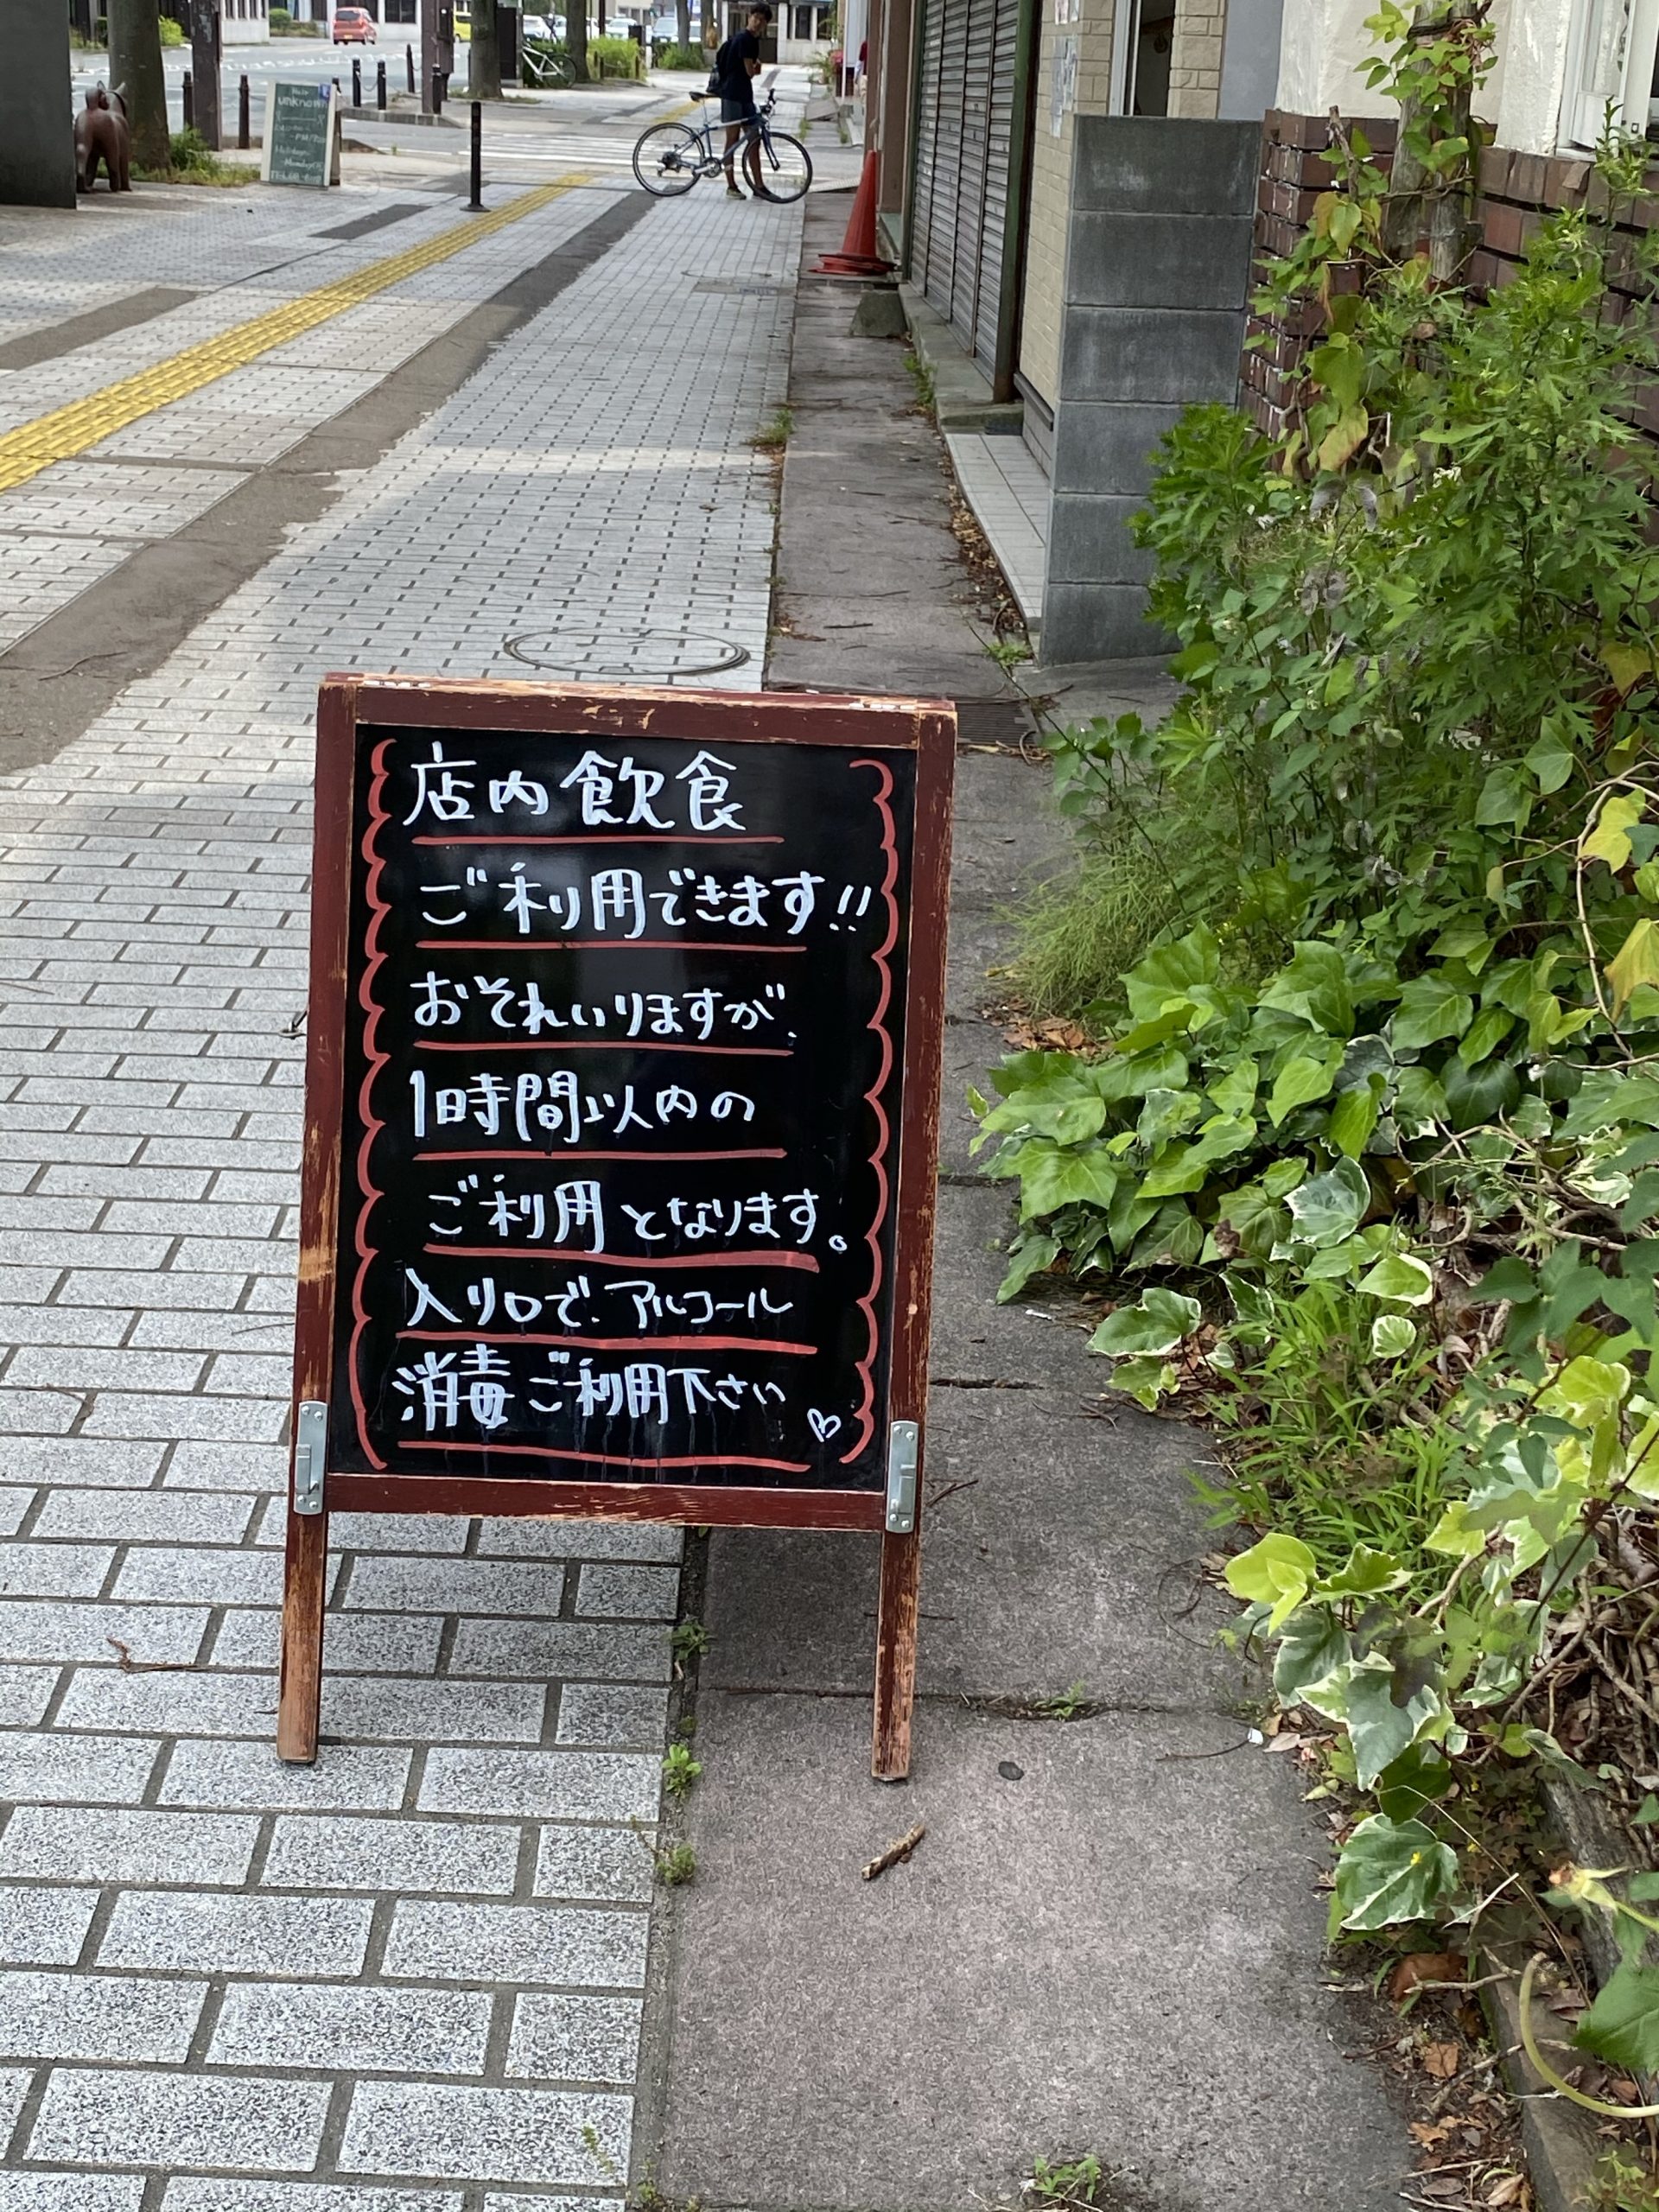 店内飲食
ご利用できます!!
おそれいりますが、
1時間以内の
ご利用となります。
入り口で、アルコール
消毒ご利用下さい
unknown